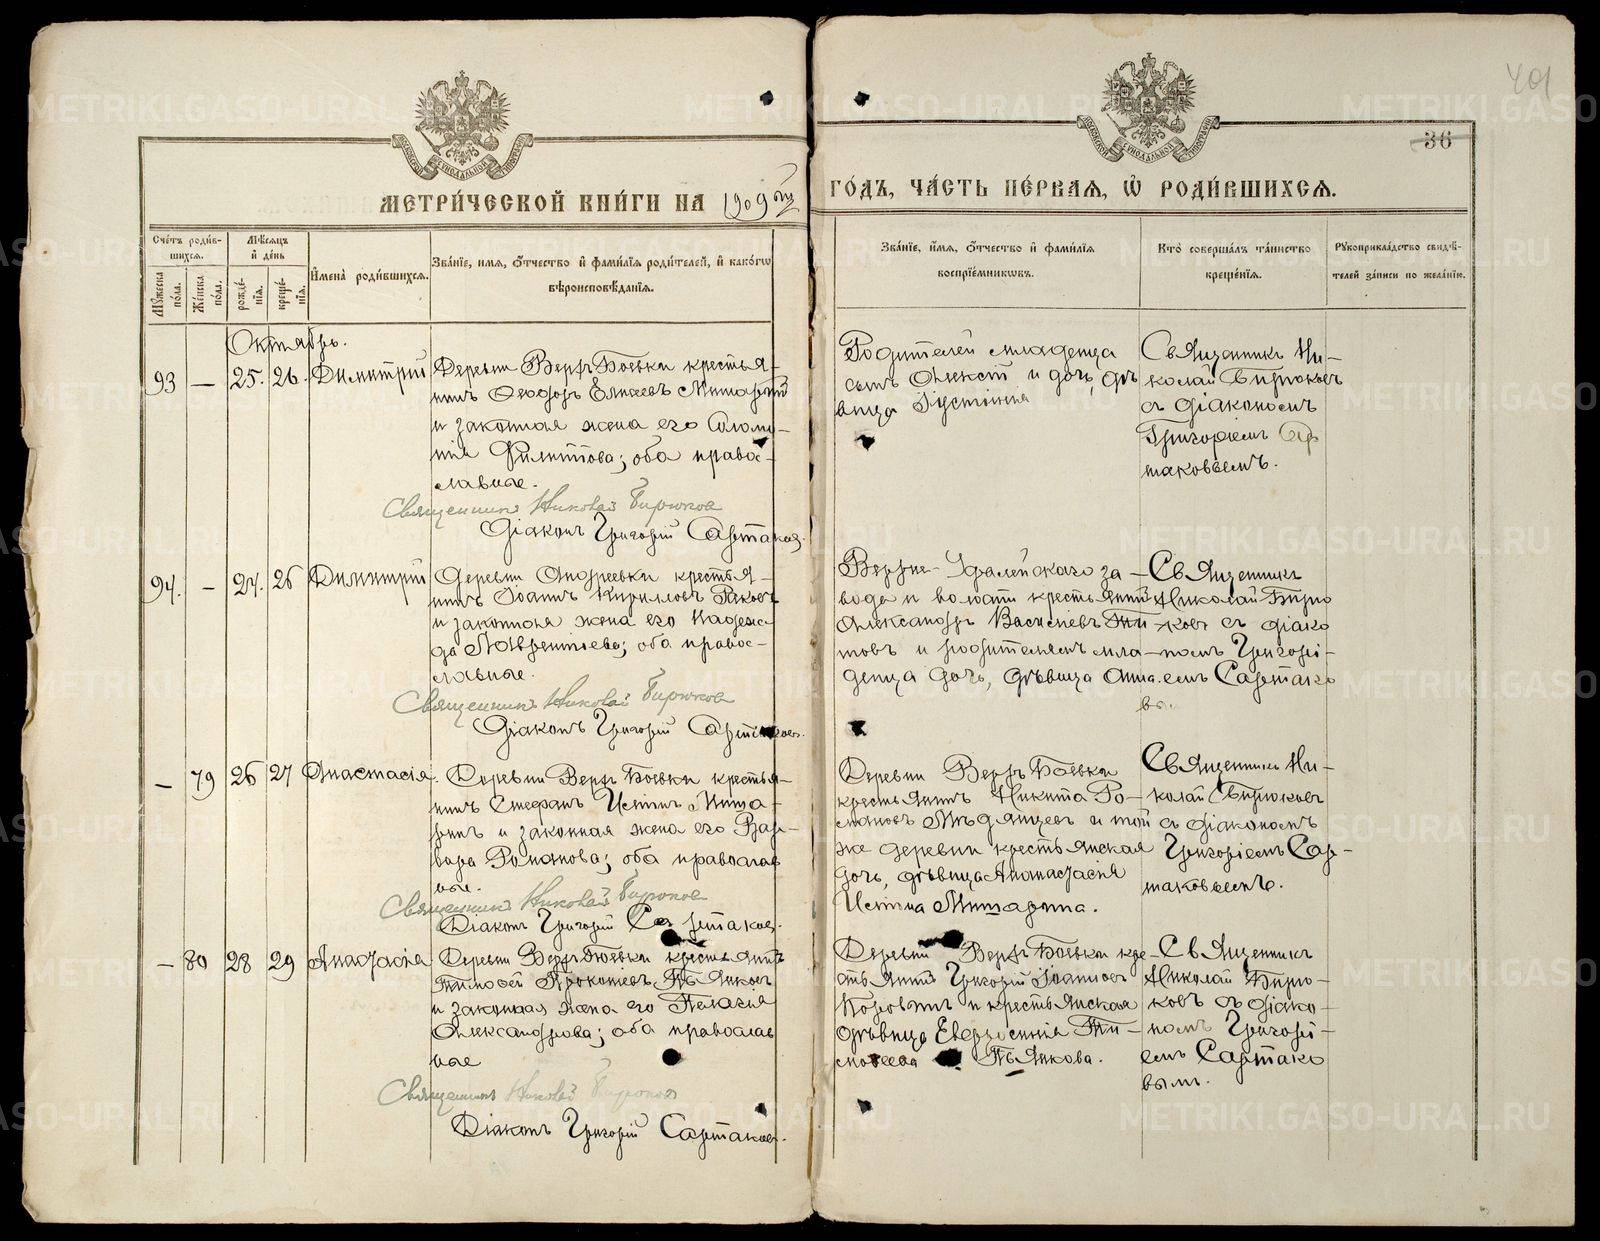 METRIKI.GASO-URAL.RU
401
36
МЕТРИ́ЧЕСКОЙ КНИ́ГИ НА 1909 год
ГО́ДЪ, ЧА́СТЬ ПЕ́РВАЯ, Ѡ҆ РОДИ́ВШИХСЯ.
Сче́тъ роди́в-
шихся.
Му́жеска по́ла.
Же́нска по́ла.
Мѣ́сяцъ
и҆ де́нь
рожде́-
нїя.
креще́-
нїя.
И҆мена̀ роди́вшихся.
Зва́нїе, и҆мя, о҆́тчество и҆ фами́лїя роди́телей, и҆ како́гѡ
вѣроисповѣ́данїя.
Зва́нїе, и҆́мя, о҆́тчество и҆ фами́лїя
воспрїе́мниковъ.
Кто̀ соверша́лъ та́инство
креще́нїя.
Рукоприкла́дство свидѣ́-
телей за́писи по жела́нїю.
Октябрь.
93 — 25. 26. Димитрій
Деревни Верхъ Боевки крестья-
нинъ Ѳеодоръ Елисеевъ
и законная жена его Соломо-
нія Филиппова; оба право-
славные.
Священникъ Николай Бирюков
Діаконъ Григорій Сартаковъ.
Родителей младенца
сынъ Алексій и дочь, дѣ
вица Іустинія
Священникъ Ни-
колай Бирюковъ
съ діакономъ
Григоріемъ Сар
таковымъ.
94. — 24. 26 Димитрій
Деревни Андреевки крестья-
нинъ Іоаннъ Кирилловъ
и законная жена его Надеж-
да Лаврентіева; оба право-
славные.
Священникъ Николай Бирюков
Діаконъ Григорій Сартаковъ.
Верхне-Уфалейскаго за-
вода и волости крестьянинъ
Александръ Васильевъ Ти-
товъ и родителямъ мла-
денца дочь, дѣвица Анна.
Священникъ
Николай Бирю
ковъ съ діако
номъ Григорі-
емъ Сартако
вы
— 79 26 27 Анастасія.
Деревни Верхъ Боевки крестья-
нинъ Стефанъ
и законная жена его Вар-
вара Романова; оба православ
ные.
Священникъ Николай Бирюков
Діаконъ Григорій Сартаковъ.
Деревни Верхъ Боевки
крестьянинъ Никита Ро-
мановъ и той
же деревни крестьянская
дочь, дѣвица Анастасія
Священникъ Ни-
колай Бирюковъ
съ діакономъ
Григоріемъ Сар-
таковымъ.
— 80 28 29 Анастасія
Деревни Верхъ Боевки крестьянинъ
Тимофей Прокопіевъ Пьянковъ
и законная жена его Пелагія
Александрова; оба православ
ные
Священникъ Николай Бирюков
Діаконъ Григорій Сартаковъ.
Деревни Верхъ Боевки кре-
стьянинъ Григорій Іоанновъ
и крестьянская
дѣвица Евдросинія Ти-
мофеева Пьянкова.
Священникъ
Николай Бирю-
ковъ съ діако-
номъ Григорі-
емъ Сартако
вымъ.